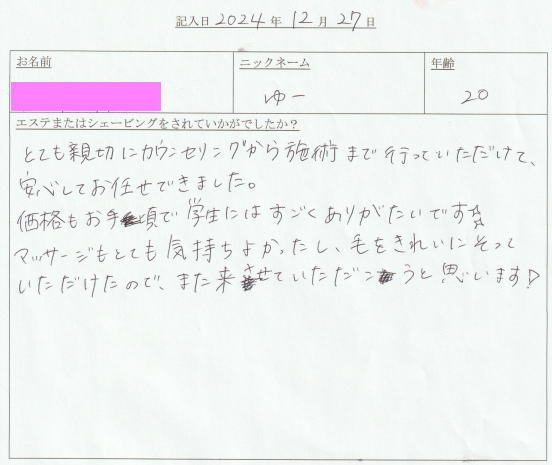 記入日 2024 年 12 月 27 日
お名前
ニックネーム
年齢
ゆー
20
エステまたはシェービングをされていかがでしたか？
とても親切にカウンセリングから施術まで行っていただけて、
安心してお任せできました。
価格もお手頃で学生にはすごくありがたいです☆☆
マッサージもとても気持ちよかったし、毛をきれいにそって
いただけたので、また来させていただこうと思います!